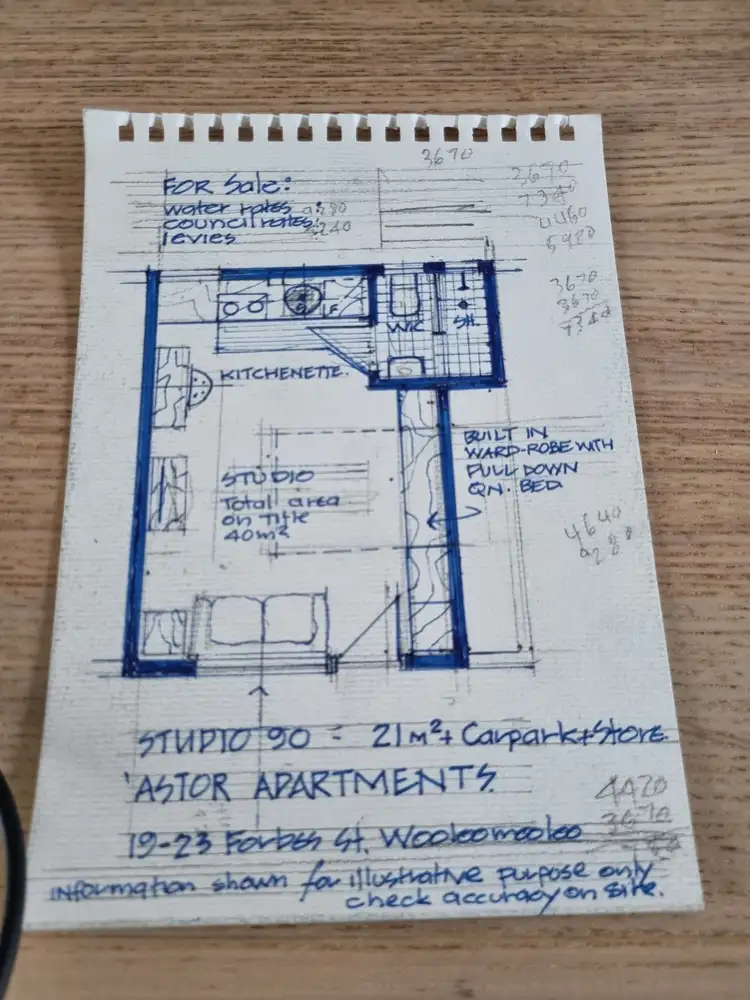 3670
FOR Sale:
water rates :
council rates:
levies
3670
7340
4460
5920
3670
3670
7340
W/C
SH.
KITCHENETTE.
BUILT IN
WARD-ROBE WITH
PULL DOWN
QN. BED.
STUDIO
Total area
on Title
40m²
4640
9280
STUDIO 90 - 21m²+ Carpark+Store.
'ASTOR APARTMENTS.
19-23 Forbes St. Wooloomooloo
3670
information shown for illustrative purpose only
check accuracy on site.